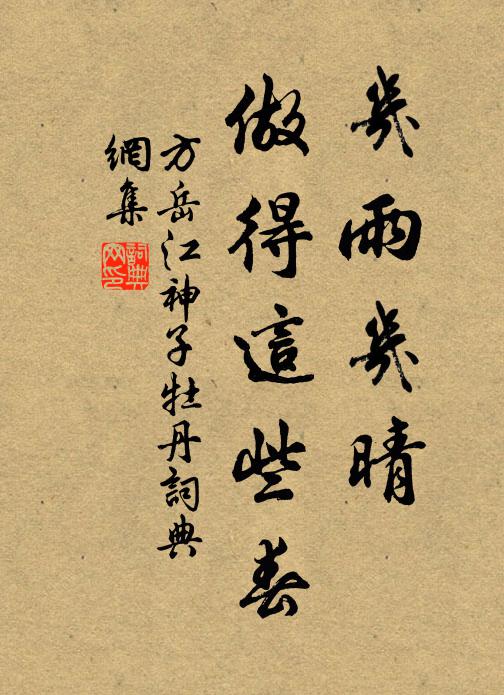 幾雨幾晴
做得這些春
方岳江神子牡丹詞典
網集
詞典
网印